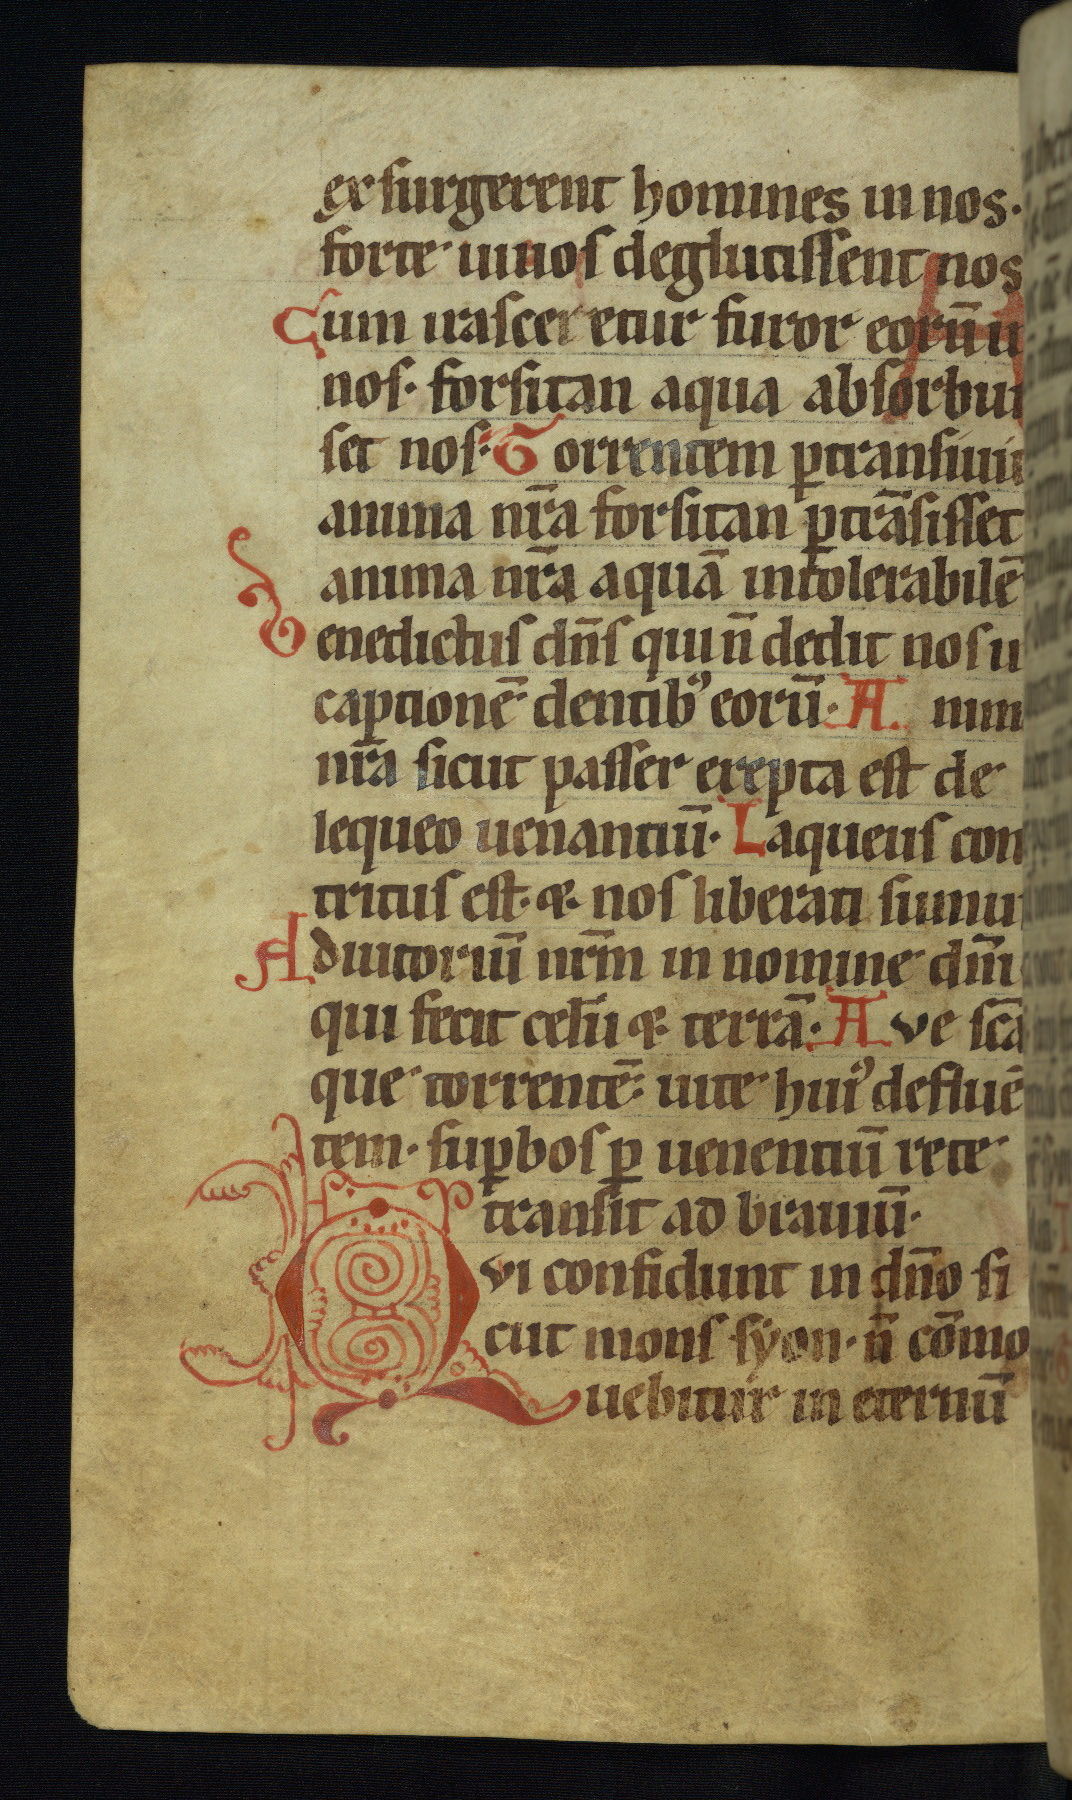 exsurgerent homines in nos·
forte uiuos deglutissent nos
Cum irasceretur furor eorū in
nos· forsitan aqua absorbuı
set nos· Torrentem ꝑtransiui
anima nr̄a forsitan ꝑtrāsisset
anima nr̄a aquā intolerabilē
Benedictus dn̄s qui n̄ dedit nos ı
captionē dentibꝰ eorū· A nim
nr̄a sicut passer erepta est de
lequeo uenantiū· Laqueus con
tritus est· ⁊ nos liberati sumu
Adiutoriū nr̄m in nomine dn̄i
qui fecit celū ⁊ terrā· Ave sc̄a
que torrentē uite huiꝰ defluē
tem· suꝑbos ꝑ uenentiū rete
transit ad brauiū·
Qvi confidunt in dn̄o si
cut mons syon· n̄ cōmo
uebitur in eternū